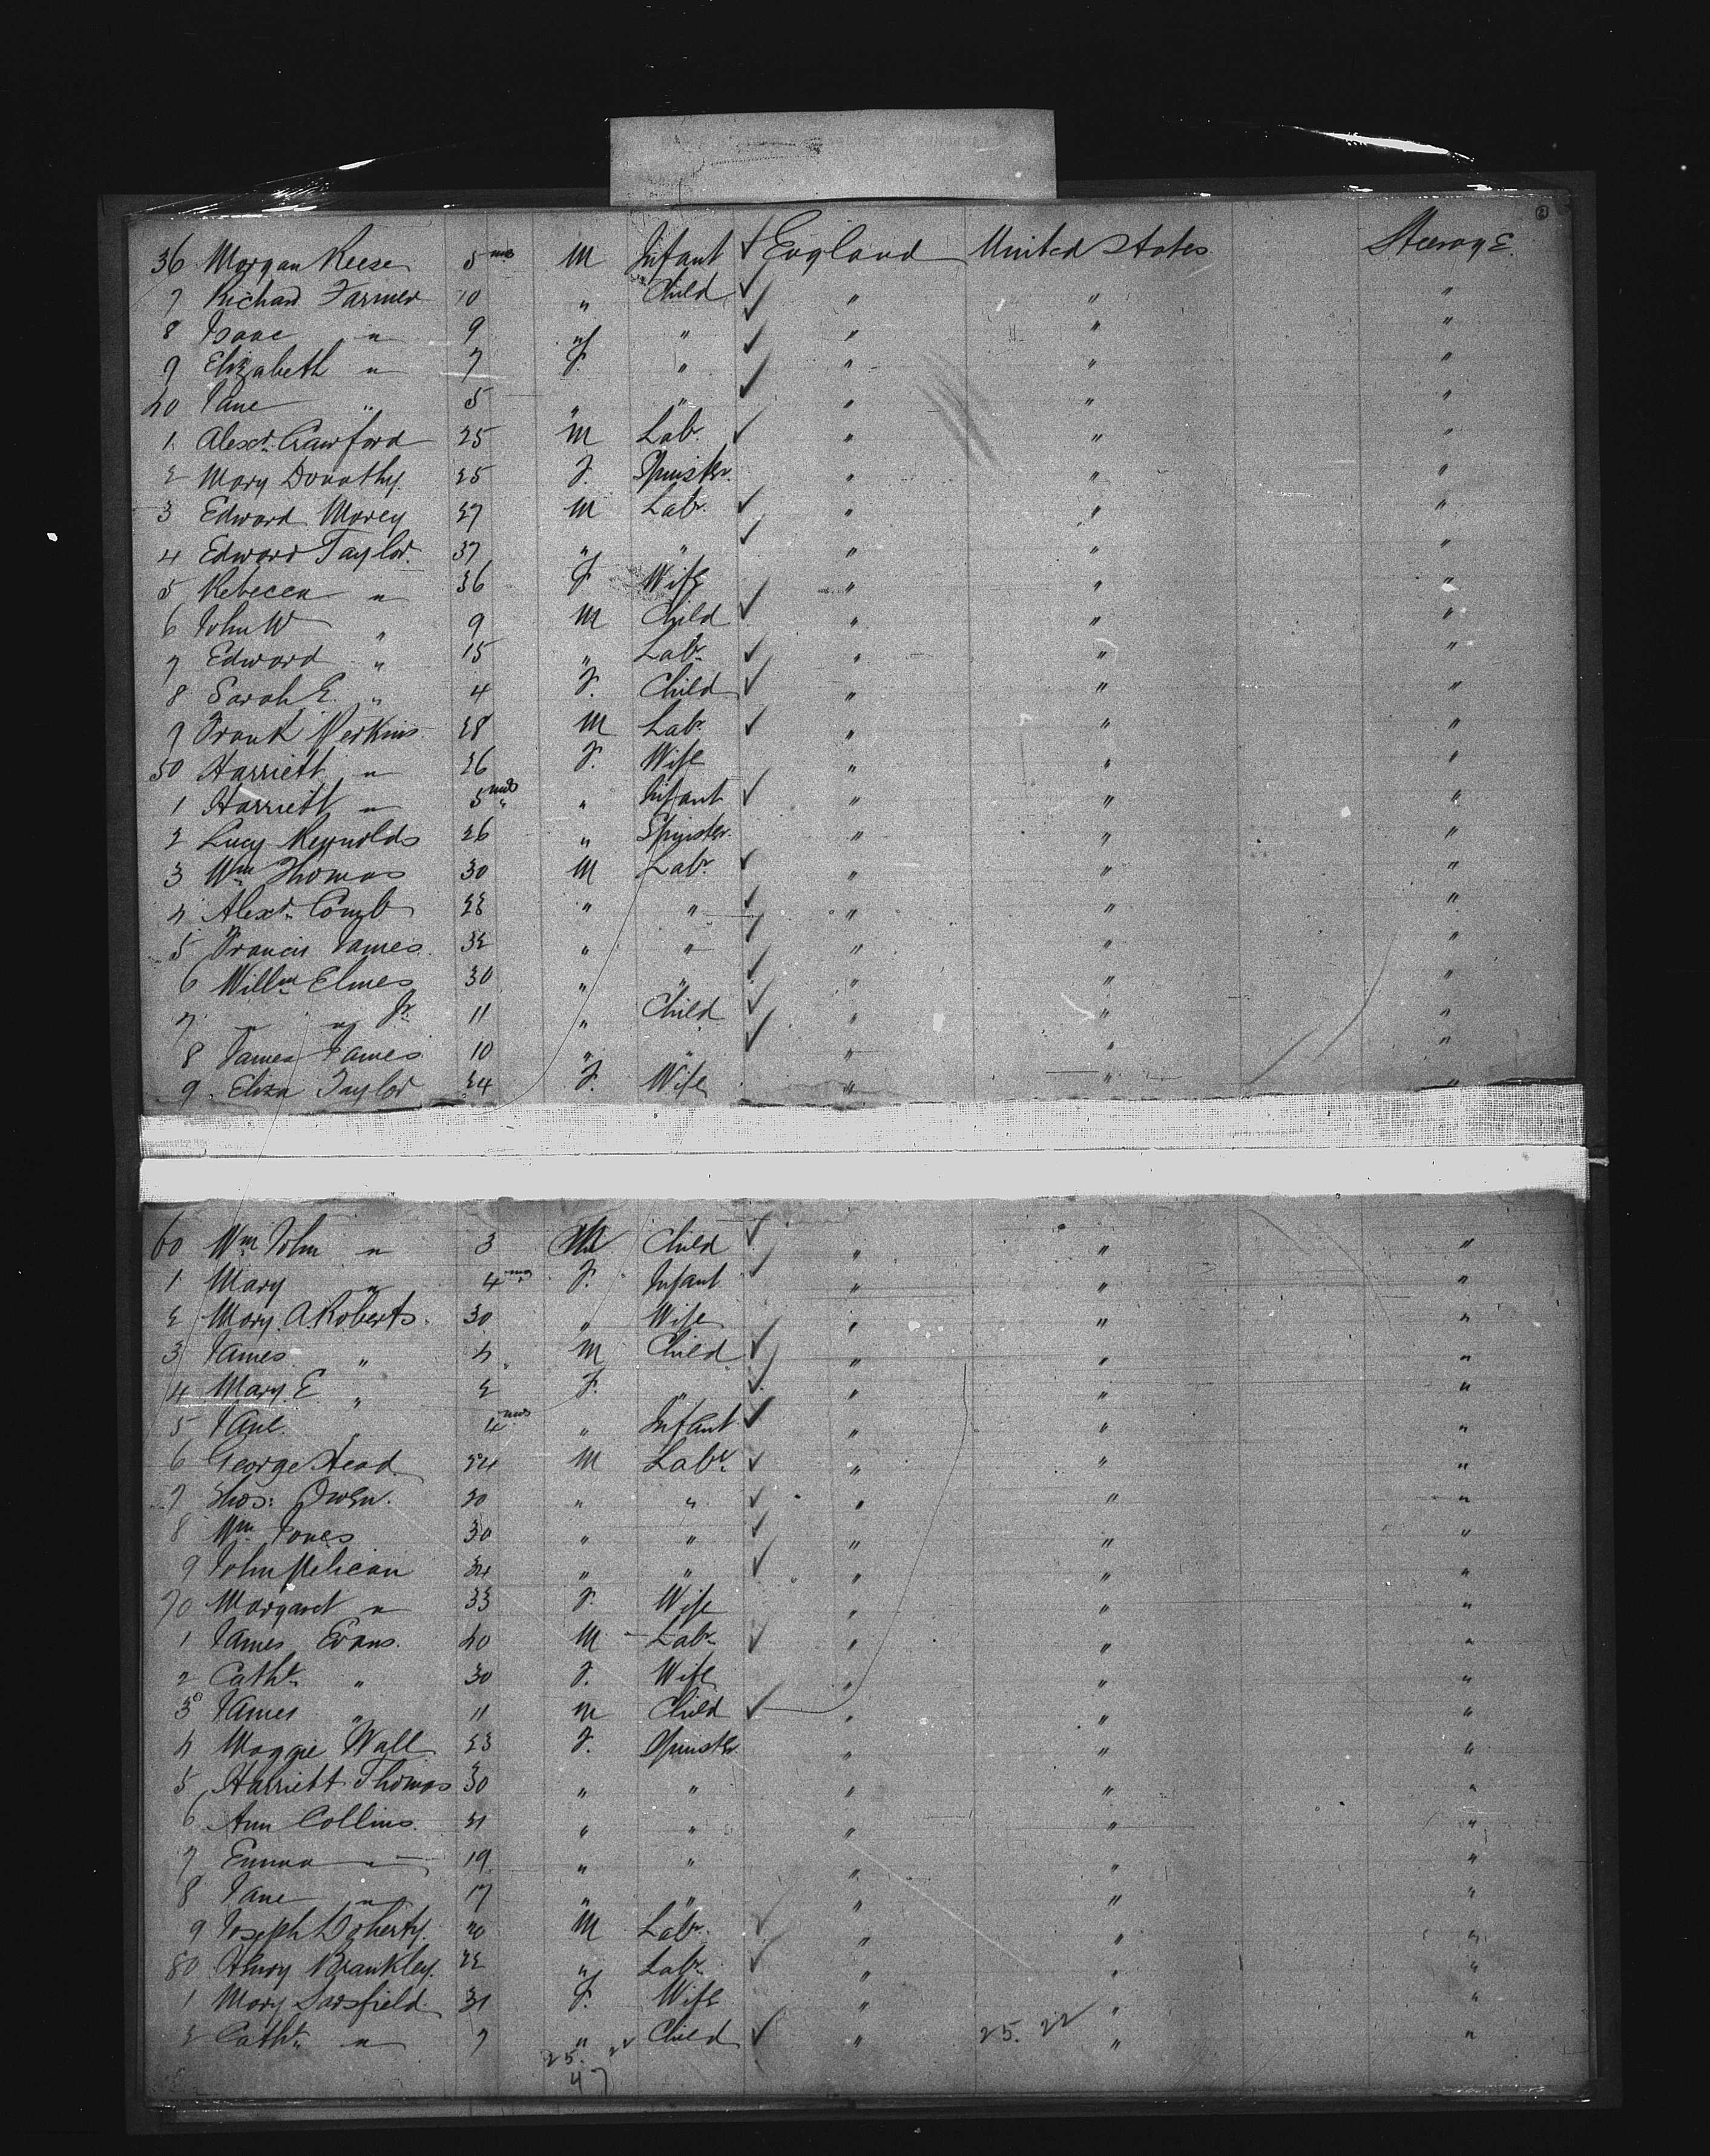 36 Morgan Reese 5 mos M Infant ✓ England United States Steerage
7 Richard Farmer 10 " Child ✓ " " "
8 Isaac " 9 " " ✓ " " "
9 Elizabeth " 7 F. " ✓ " " "
40 Jane " 5 " " ✓ " " "
1 Alexr. Crawford 25 M Labr. ✓ " " "
2 Mary Donathy. 25 F. Spinster. " " "
3 Edward Morey 27 M Labr. ✓ " " "
4 Edward Taylor. 37 " " ✓ " " "
5 Rebecca " 36 F. Wife " " "
6 John W " 9 M Child ✓ " " "
7 Edward " 15 " Labr. ✓ " " "
8 Sarah E. " 4 F. Child ✓ " " "
9 Frank Perkins. 28 M Labr. ✓ " " "
50 Harriett " 26 F. Wife " " "
1 Harriett " 5 mos " Infant ✓ " " "
2 Lucy Reynolds 26 " Spinster. " " "
3 Wm Thomas 30 M Labr. ✓ " " "
4 Alexr. Comb 28 " " ✓ " " "
5 Francis James. 32 " " ✓ " " "
6 Willm Elmes 30 " " ✓ " " "
7 " " Jr. 11 " Child ✓ " " "
8 James James 10 " " ✓ " " "
9. Eliza Taylor 24 F. Wife " " "
60 Wm John " 3 M Child ✓ " " "
1 Mary " 4 mos F. Infant ✓ " " "
2 Mary A. Roberts. 30 " Wife " " "
3 James " 4 M Child ✓ " " "
4 Mary E " 2 F. " ✓ " " "
5 Jane " 4 mos " Infant ✓ " " "
6 George Head 24 M Labr. ✓ " " "
7 Thos: Owen. 20 " " ✓ " " "
8 Wm Jones 30 " " ✓ " " "
9 John Melican 34 " " ✓ " " "
70 Margaret " 33 F. Wife " " "
1 James Evans. 40 M Labr. ✓ " " "
2 Cathr. " 30 F. Wife " " "
3 James " 11 M Child ✓ " " "
4 Maggie Wall 23 F. Spinster " " "
5 Harriett Thomas 30 " " " " "
6 Ann Collins. 21 " " " " "
7 Emma " 19 " " " " "
8 Jane " 17 " " " " "
9 Joseph Doherty. 20 M Labr. ✓ " " "
80 Henry Brankley. 22 " Labr. ✓ " " "
1 Mary Sarsfield. 31 F. Wife " " "
2 Cathr. " 7 " Child ✓ " " "
25. 22 25. 22
47